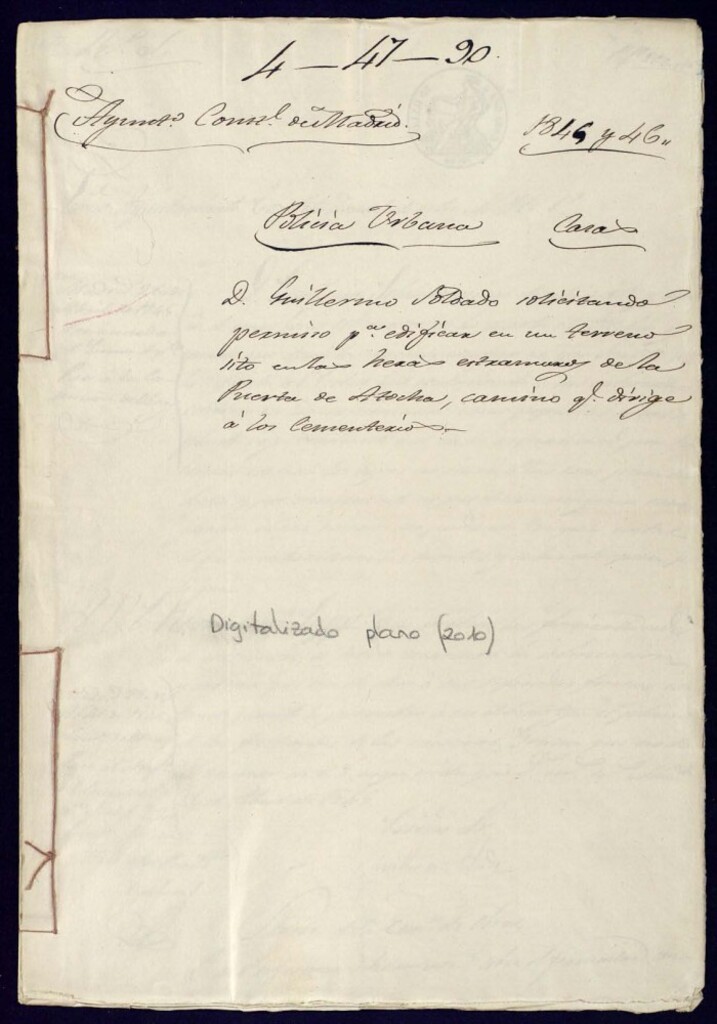 4-47-90.
Ayunto. Constl. de Madrid.
1845 y 46.
Policia Urbana
Casas
D. Guillermo Soldado solicitando
permiso pa. edificar en un terreno
sito en las heras estramuros de la
Puerta de Atocha, camino q. dirige
á los Cementerios.
Digitalizado plano (2010)